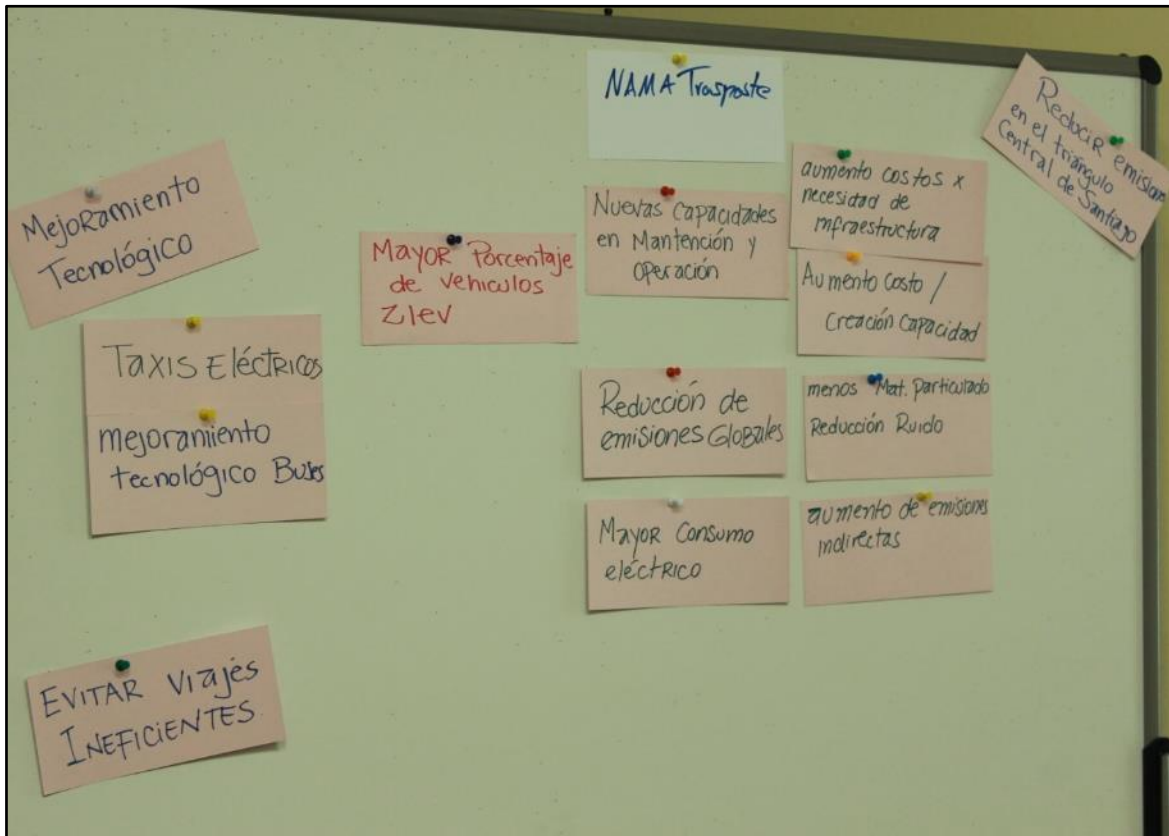 NAMA Trasporte
Reducir emisiones
en el triángulo
Central de Santiago
Mejoramiento
Tecnológico
Taxis Eléctricos
mejoramiento
tecnológico Buses
Evitar Viajes
Ineficientes.
Mayor Porcentaje
de vehiculos
zlev
Nuevas Capacidades
en Mantención y
Operación
aumento costos x
necesidad de
infraestructura
Aumento Costo /
Creación Capacidad
Reducción de
emisiones Globales
menos Mat. Particulado
Reducción Ruido
Mayor Consumo
eléctrico
aumento de emisiones
indirectas